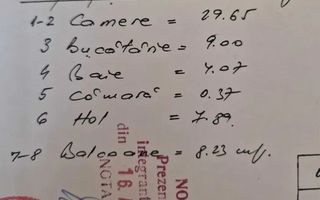 1-2 Camere = 29.65
3 Bucătărie = 9.00
4 Baie = 4.07
5 Cămară = 0.37
6 Hol = 7.89
7-8 Balcoane = 8.23 mp.
NO
Prezen
integrant
din 16.
NOTA